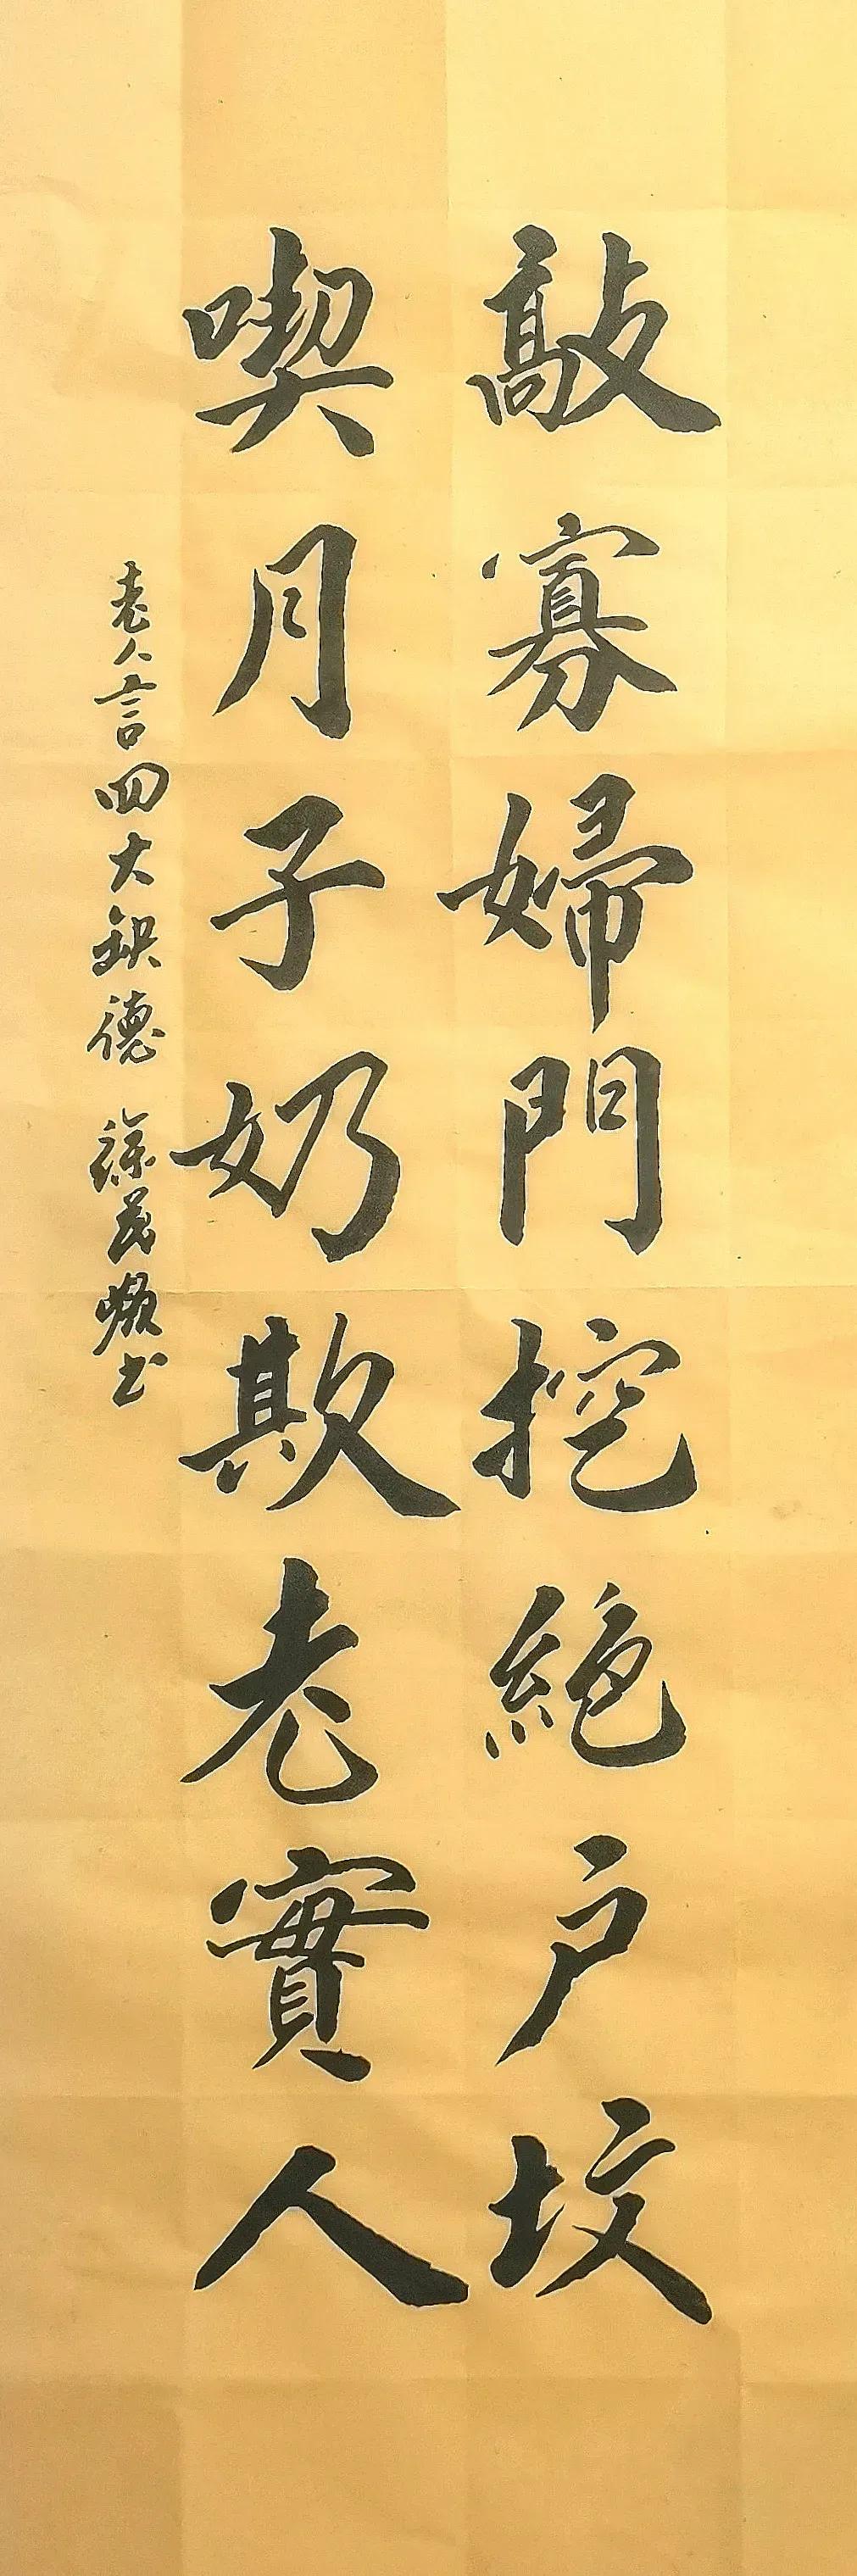 敲寡婦門挖絕戶坟
喫月子奶欺老實人
老人言四大缺德 徐茂懒书